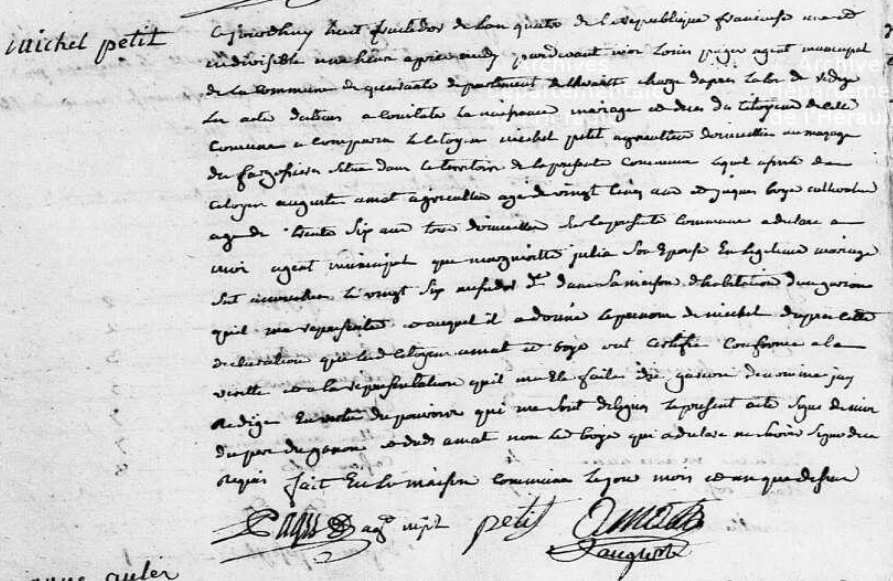 michel petit
ce jourdhuy huit fructidor de lan quatre de la republique francaise une et
indivisible une heure apres midy pardevant moi Louis pages agent municipal
de la Commune de departement de lherault charge dapres la loi de rediger
les acte destines a constater la naissance mariage et deces des Citoyens de cete
Commune a comparu le Citoyen michel petit agriculteur domicilie au
du situe dans le territoire de la presente Commune lequel assiste de
Citoyen auguste amat agriculteur age de vingt cinq ans et jaques boye cultivateur
age de trente six ans tous domicilies sur la presente Commune a declare a
moi agent municipal que margueritte julia Son Epouse En legitime mariage
est accouchee le vingt six dans sa maison dhabitation dun garcon
quil ma representé et auquel il a donné le prenom de michel dapres cette
declaration que les Citoyens amat et boye ont certifie Conforme a la
verité et a la representation quil ma Eté faite du garcon denomme jay
Redige En vertu des pouvoirs qui me sont delegues le present acte signe de moi
du pere du garcon et dud amat non led boye qui a declare ne savoir signe de ce
Requis fait En la maison commune le jour mois et an que dessus
Pages agt mpl petit amat